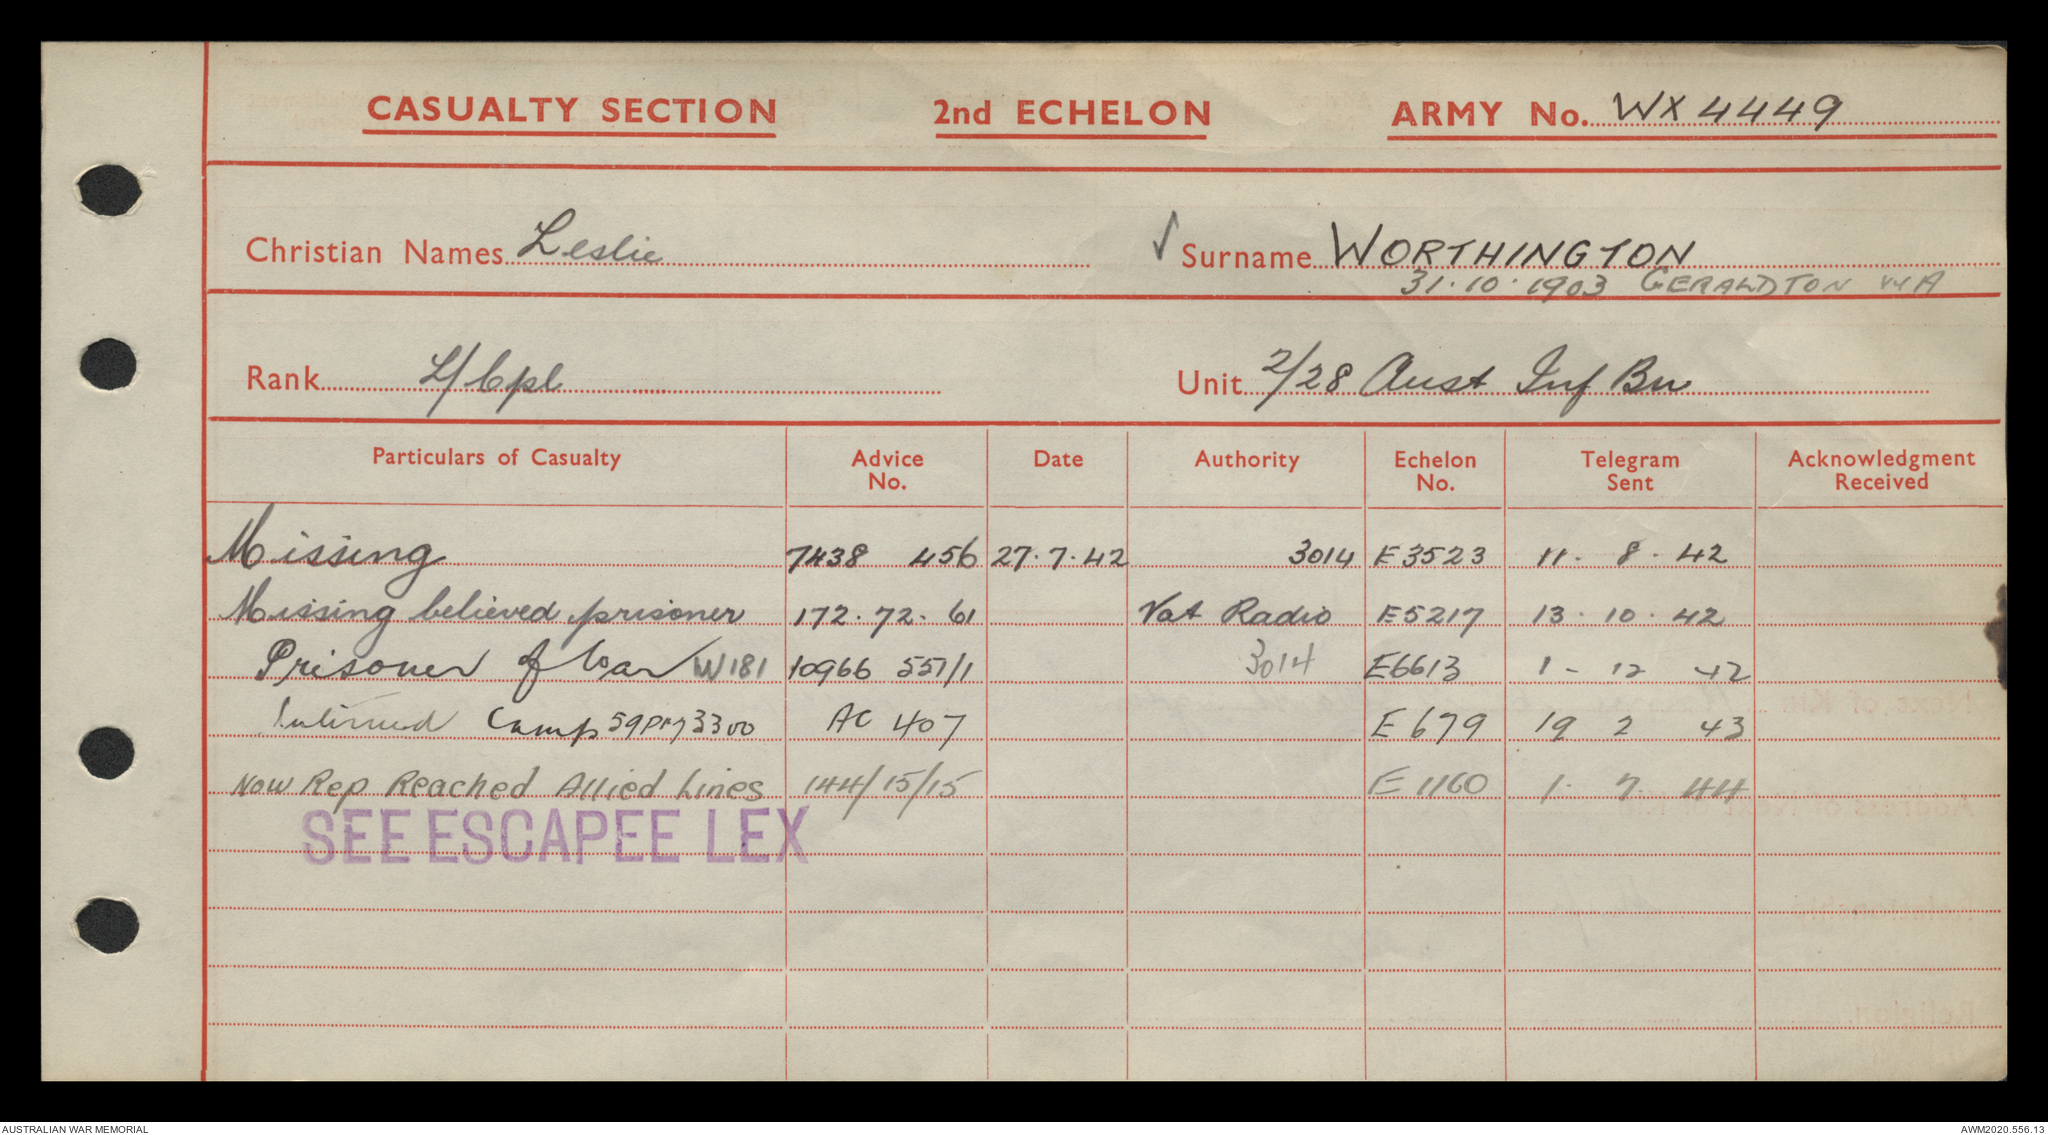 CASUALTY SECTION 2nd ECHELON ARMY No. WX4449
Christian Names Leslie Surname WORTHINGTON
31.10.1903 GERALDTON WA
Rank L/Cpl Unit 2/28 Aust Inf Bn
Particulars of Casualty Advice No. Date Authority Echelon No. Telegram Sent Acknowledgment Received
Missing 7438 456 27.7.42 3014 E3523 11. 8. 42
Missing believed prisoner 172.72.61 Vat Radio E5217 13.10.42
Prisoner of War W181 10966 557/1 3014 E6613 1 - 12 42
Interned Camp 59 PM 3300 AC 407 E679 19 2 43
Now Rep Reached Allied Lines 144/15/15 E1160 1. 7. 44
SEE ESCAPEE LEX
AUSTRALIAN WAR MEMORIAL AWM2020.556.13